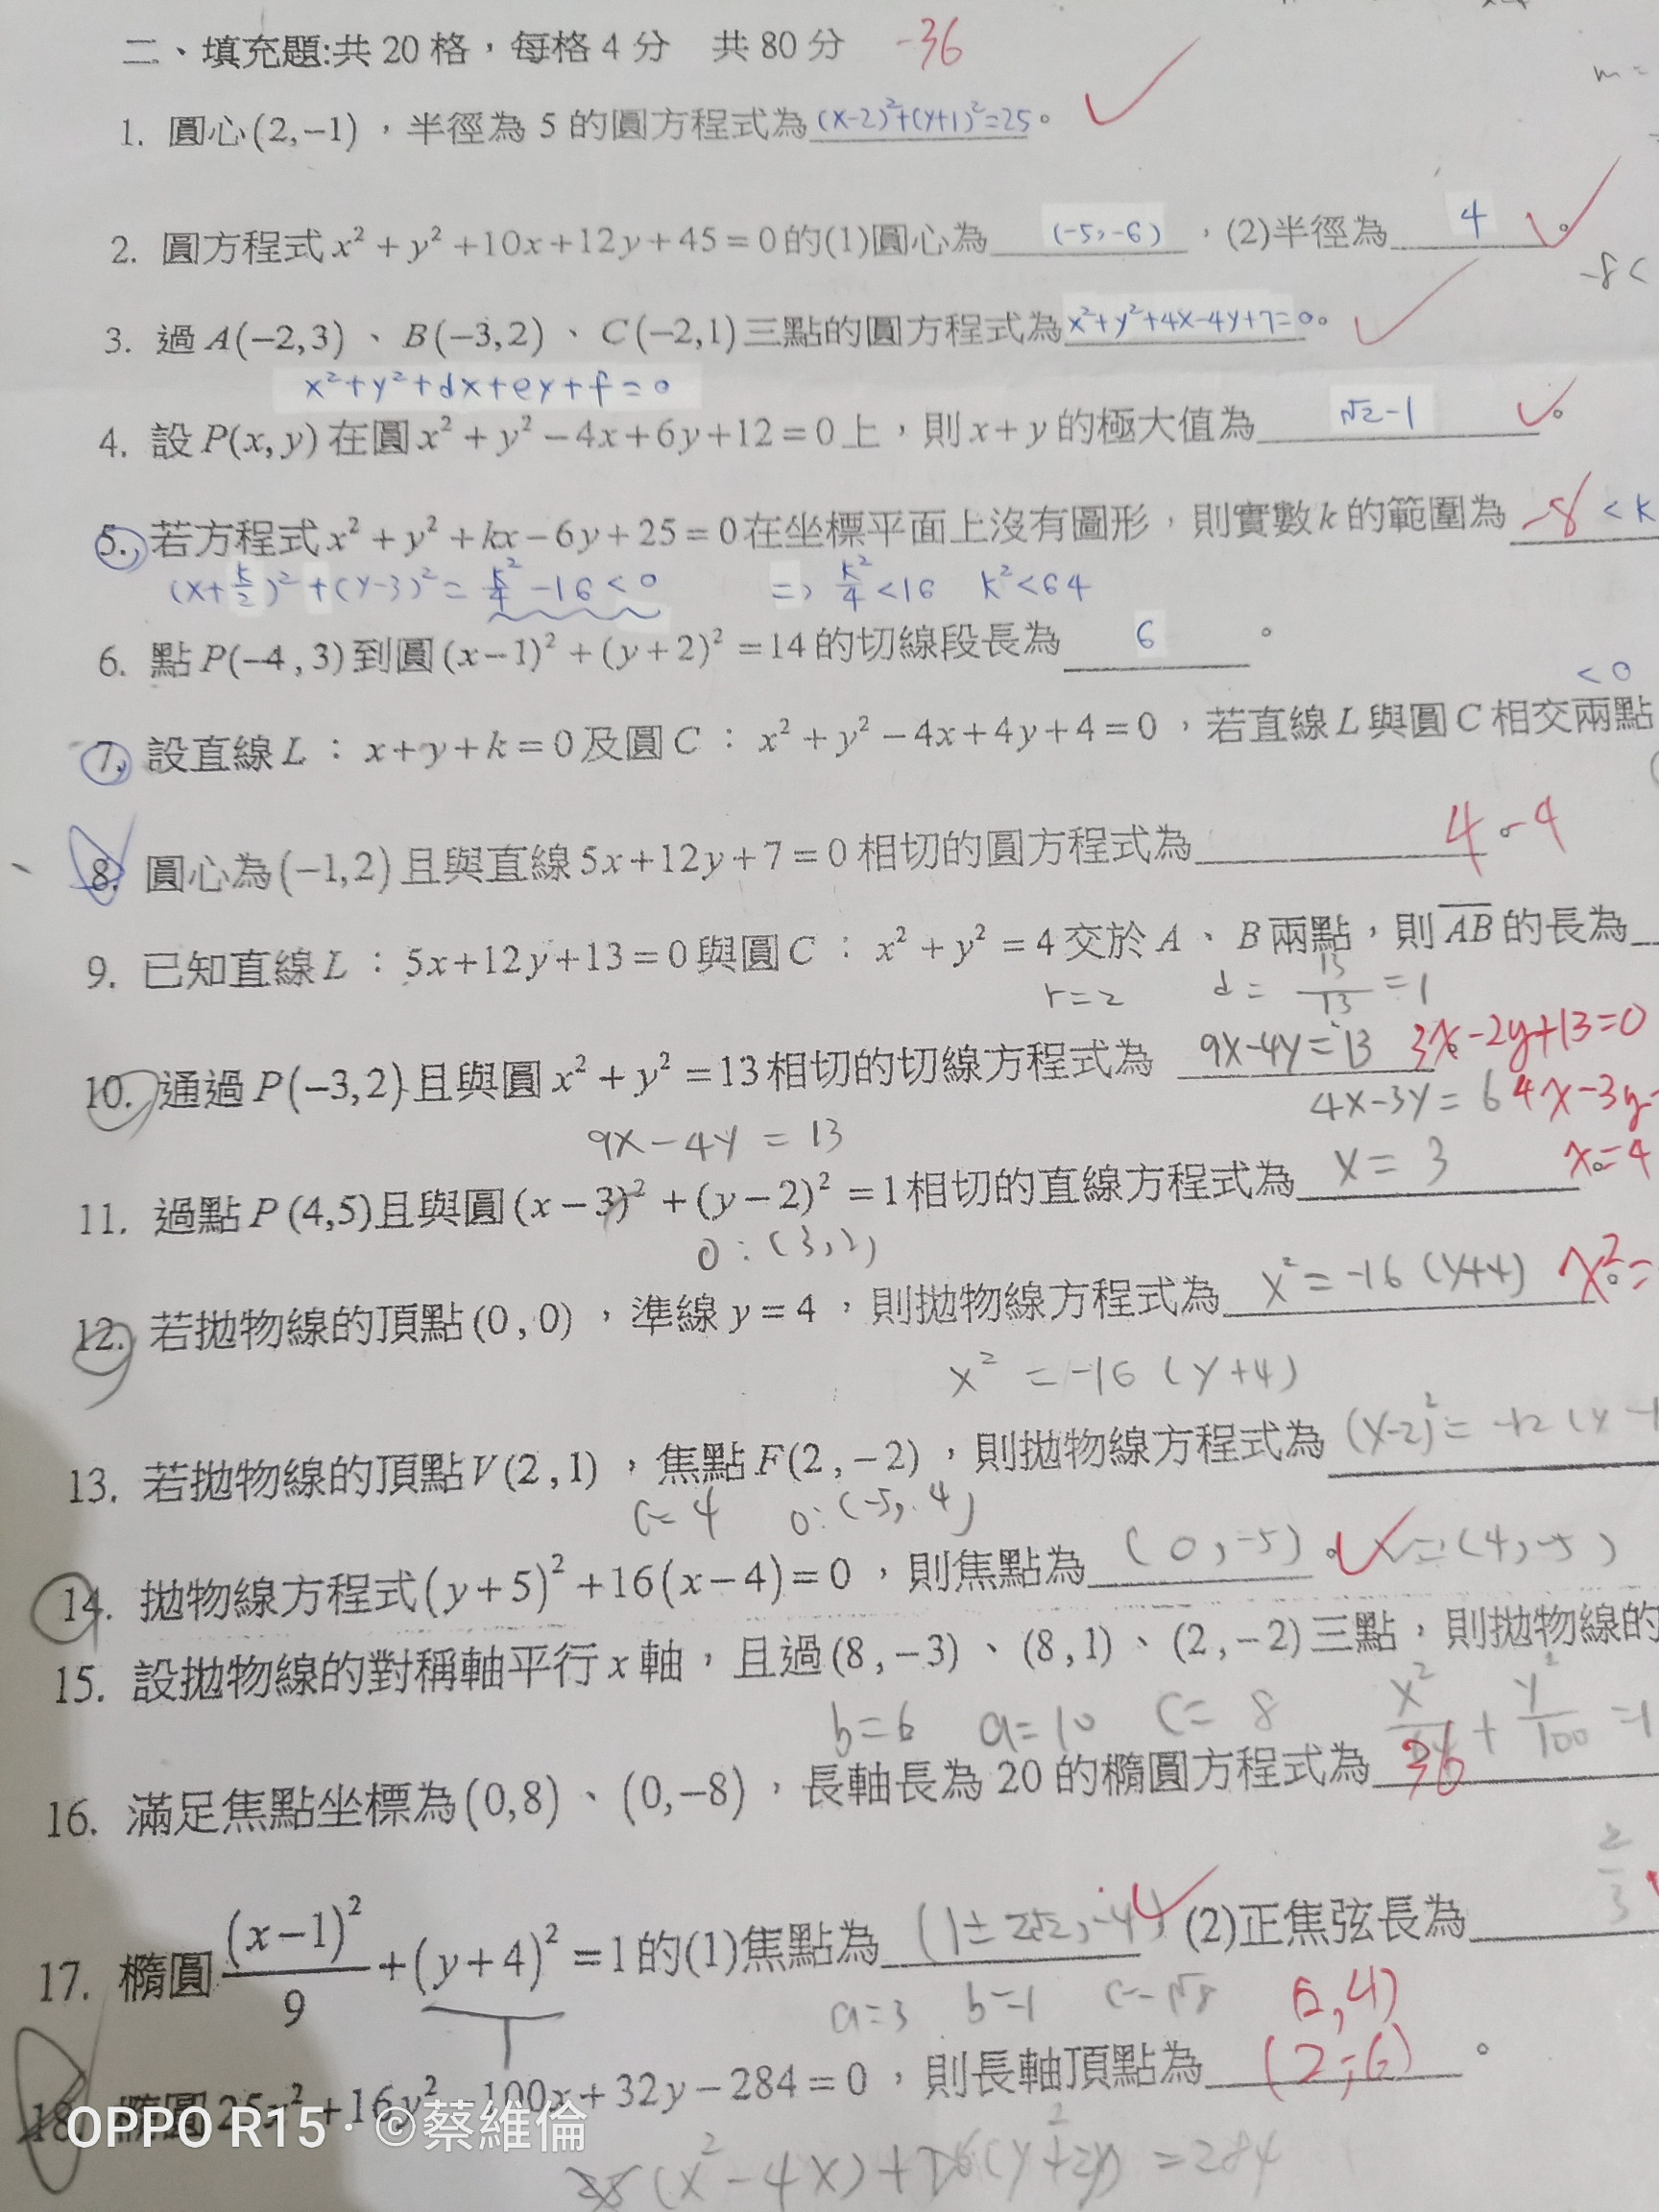 二、填充題:共 20 格，每格 4 分　共 80 分　-36
m =
1. 圓心(2,-1)，半徑為 5 的圓方程式為 (x-2)²+(y+1)²=25。
2. 圓方程式 x²+y²+10x+12y+45=0 的(1)圓心為 (-5,-6)，(2)半徑為 4。
-8<
3. 過 A(-2,3)、B(-3,2)、C(-2,1)三點的圓方程式為 x²+y²+4x-4y+7=0。
x²+y²+dx+ey+f=0
4. 設 P(x,y)在圓 x²+y²-4x+6y+12=0 上，則 x+y 的極大值為 √2-1。
5. 若方程式 x²+y²+kx-6y+25=0 在坐標平面上沒有圖形，則實數 k 的範圍為 -8<k
(x+k/2)²+(y-3)²=k²/4-16<0　=> k²/4<16　k²<64
6. 點 P(-4,3)到圓(x-1)²+(y+2)²=14 的切線段長為 6。
<0
7. 設直線 L：x+y+k=0 及圓 C：x²+y²-4x+4y+4=0，若直線 L 與圓 C 相交兩點
8. 圓心為(-1,2)且與直線 5x+12y+7=0 相切的圓方程式為。
9. 已知直線 L：5x+12y+13=0 與圓 C：x²+y²=4 交於 A、B 兩點，則 AB 的長為
r=2　d=13/13=1
10. 通過 P(-3,2)且與圓 x²+y²=13 相切的切線方程式為 9x-4y=13。 3x-2y+13=0
4x-3y=6　4x-3y-
9x-4y=13
11. 過點 P(4,5)且與圓(x-3)²+(y-2)²=1 相切的直線方程式為 x=3。 x=4
O:(3,2)
12. 若拋物線的頂點(0,0)，準線 y=4，則拋物線方程式為 x²=-16(y+4)。 x²=
x²=-16(y+4)
13. 若拋物線的頂點 V(2,1)，焦點 F(2,-2)，則拋物線方程式為 (x-2)²=-12(y-1
c=4　O:(-5,4)
14. 拋物線方程式(y+5)²+16(x-4)=0，則焦點為 (0,-5)。 V=(4,-5)
15. 設拋物線的對稱軸平行 x 軸，且過(8,-3)、(8,1)、(2,-2)三點，則拋物線的
b=6　a=10　c=8　x²/36+y²/100=1
16. 滿足焦點坐標為(0,8)、(0,-8)，長軸長為 20 的橢圓方程式為
17. 橢圓 (x-1)²/9+(y+4)²=1 的(1)焦點為 (1±2√2,-4) (2)正焦弦長為 2/3
a=3　b=1　c=√8
18. 橢圓 25x²+16y²-100x+32y-284=0，則長軸頂點為 (2,4) (2,-6)。
(x²-4x)+16(y²+2y)=284
OPPO R15 · ©蔡維倫